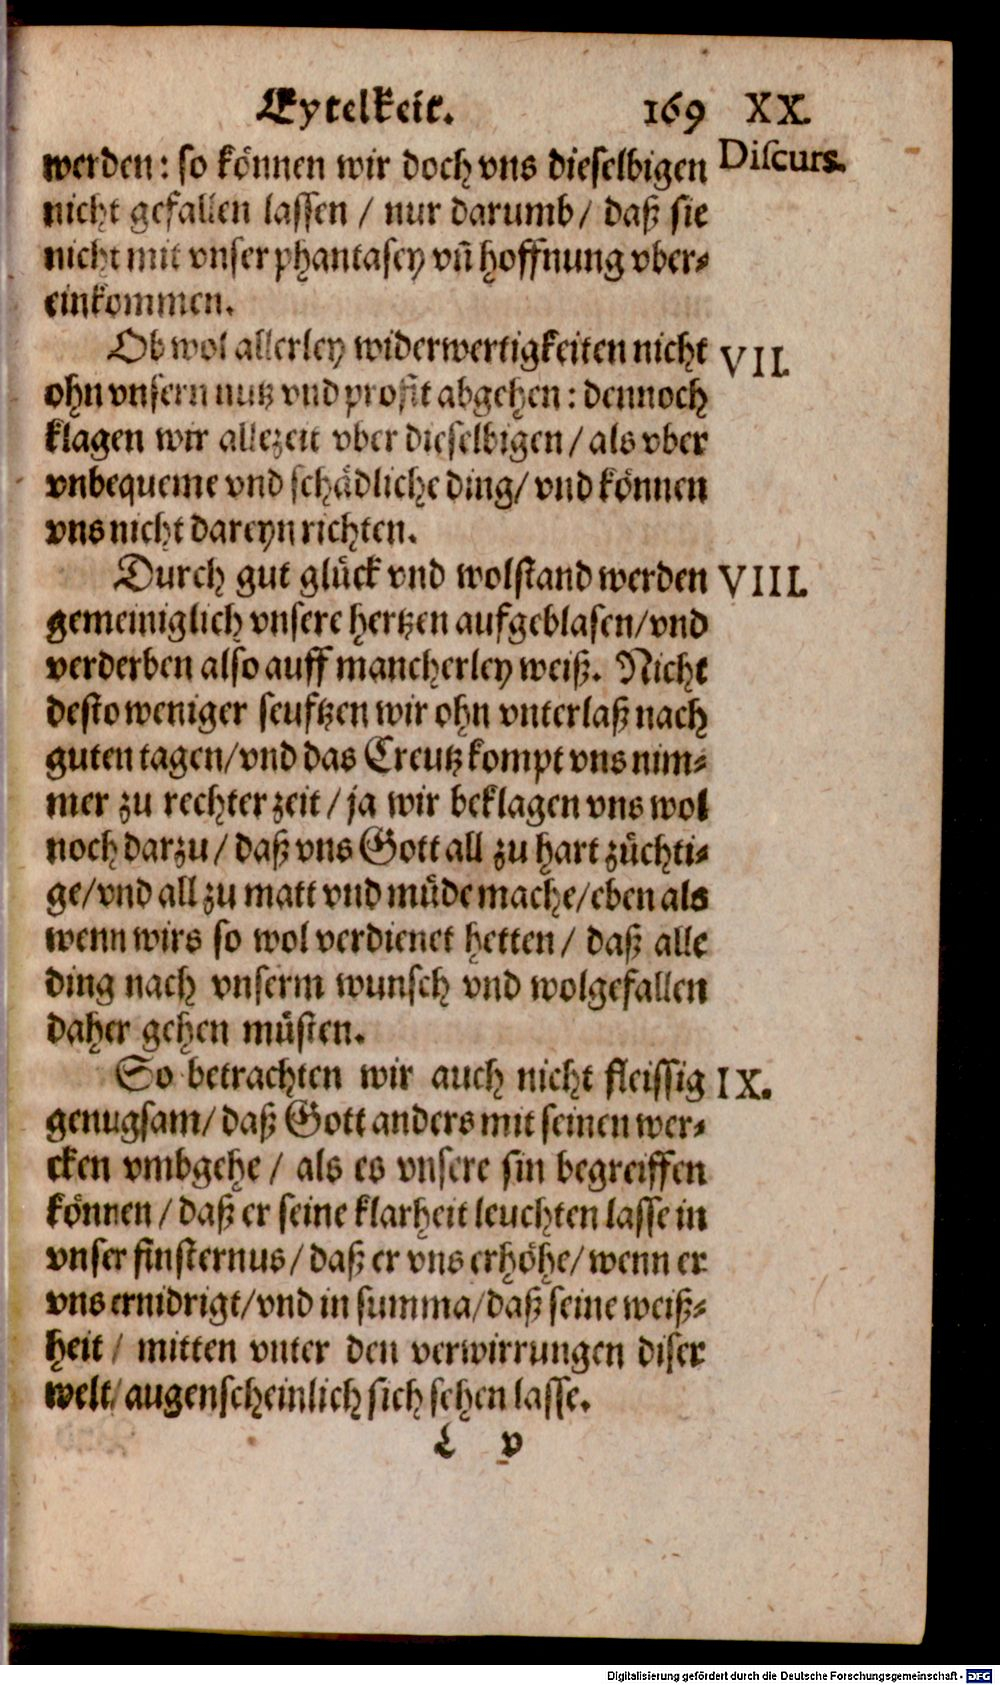 Eytelkeit. 169 XX.
Discurs.
werden: so können wir doch vns dieselbigen
nicht gefallen lassen / nur darumb / daß sie
nicht mit vnser phantasey vñ hoffnung vber⸗
einkommen.
Ob wol allerley widerwertigkeiten nicht VII.
ohn vnsern nutz vnd profit abgehen: dennoch
klagen wir allezeit vber dieselbigen / als vber
vnbequeme vnd schädliche ding / vnd können
vns nicht dareyn richten.
Durch gut glück vnd wolstand werden VIII.
gemeiniglich vnsere hertzen aufgeblasen / vnd
verderben also auff mancherley weiß. Nicht
desto weniger seufftzen wir ohn vnterlaß nach
guten tagen / vnd das Creutz kompt vns nim⸗
mer zu rechter zeit / ja wir beklagen vns wol
noch darzu / daß vns Gott all zu hart züchti⸗
ge / vnd all zu matt vnd müde mache / eben als
wenn wirs so wol verdienet hetten / daß alle
ding nach vnserm wunsch vnd wolgefallen
daher gehen müsten.
So betrachten wir auch nicht fleissig IX.
genugsam / daß Gott anders mit seinen wer⸗
cken vmbgehe / als es vnsere sin begreiffen
können / daß er seine klarheit leuchten lasse in
vnser finsternus / daß er vns erhöhe / wenn er
vns ernidrigt / vnd in summa / daß seine weiß⸗
heit / mitten vnter den verwirrungen diser
welt / augenscheinlich sich sehen lasse.
L v
Digitalisierung gefördert durch die Deutsche Forschungsgemeinschaft - DFG